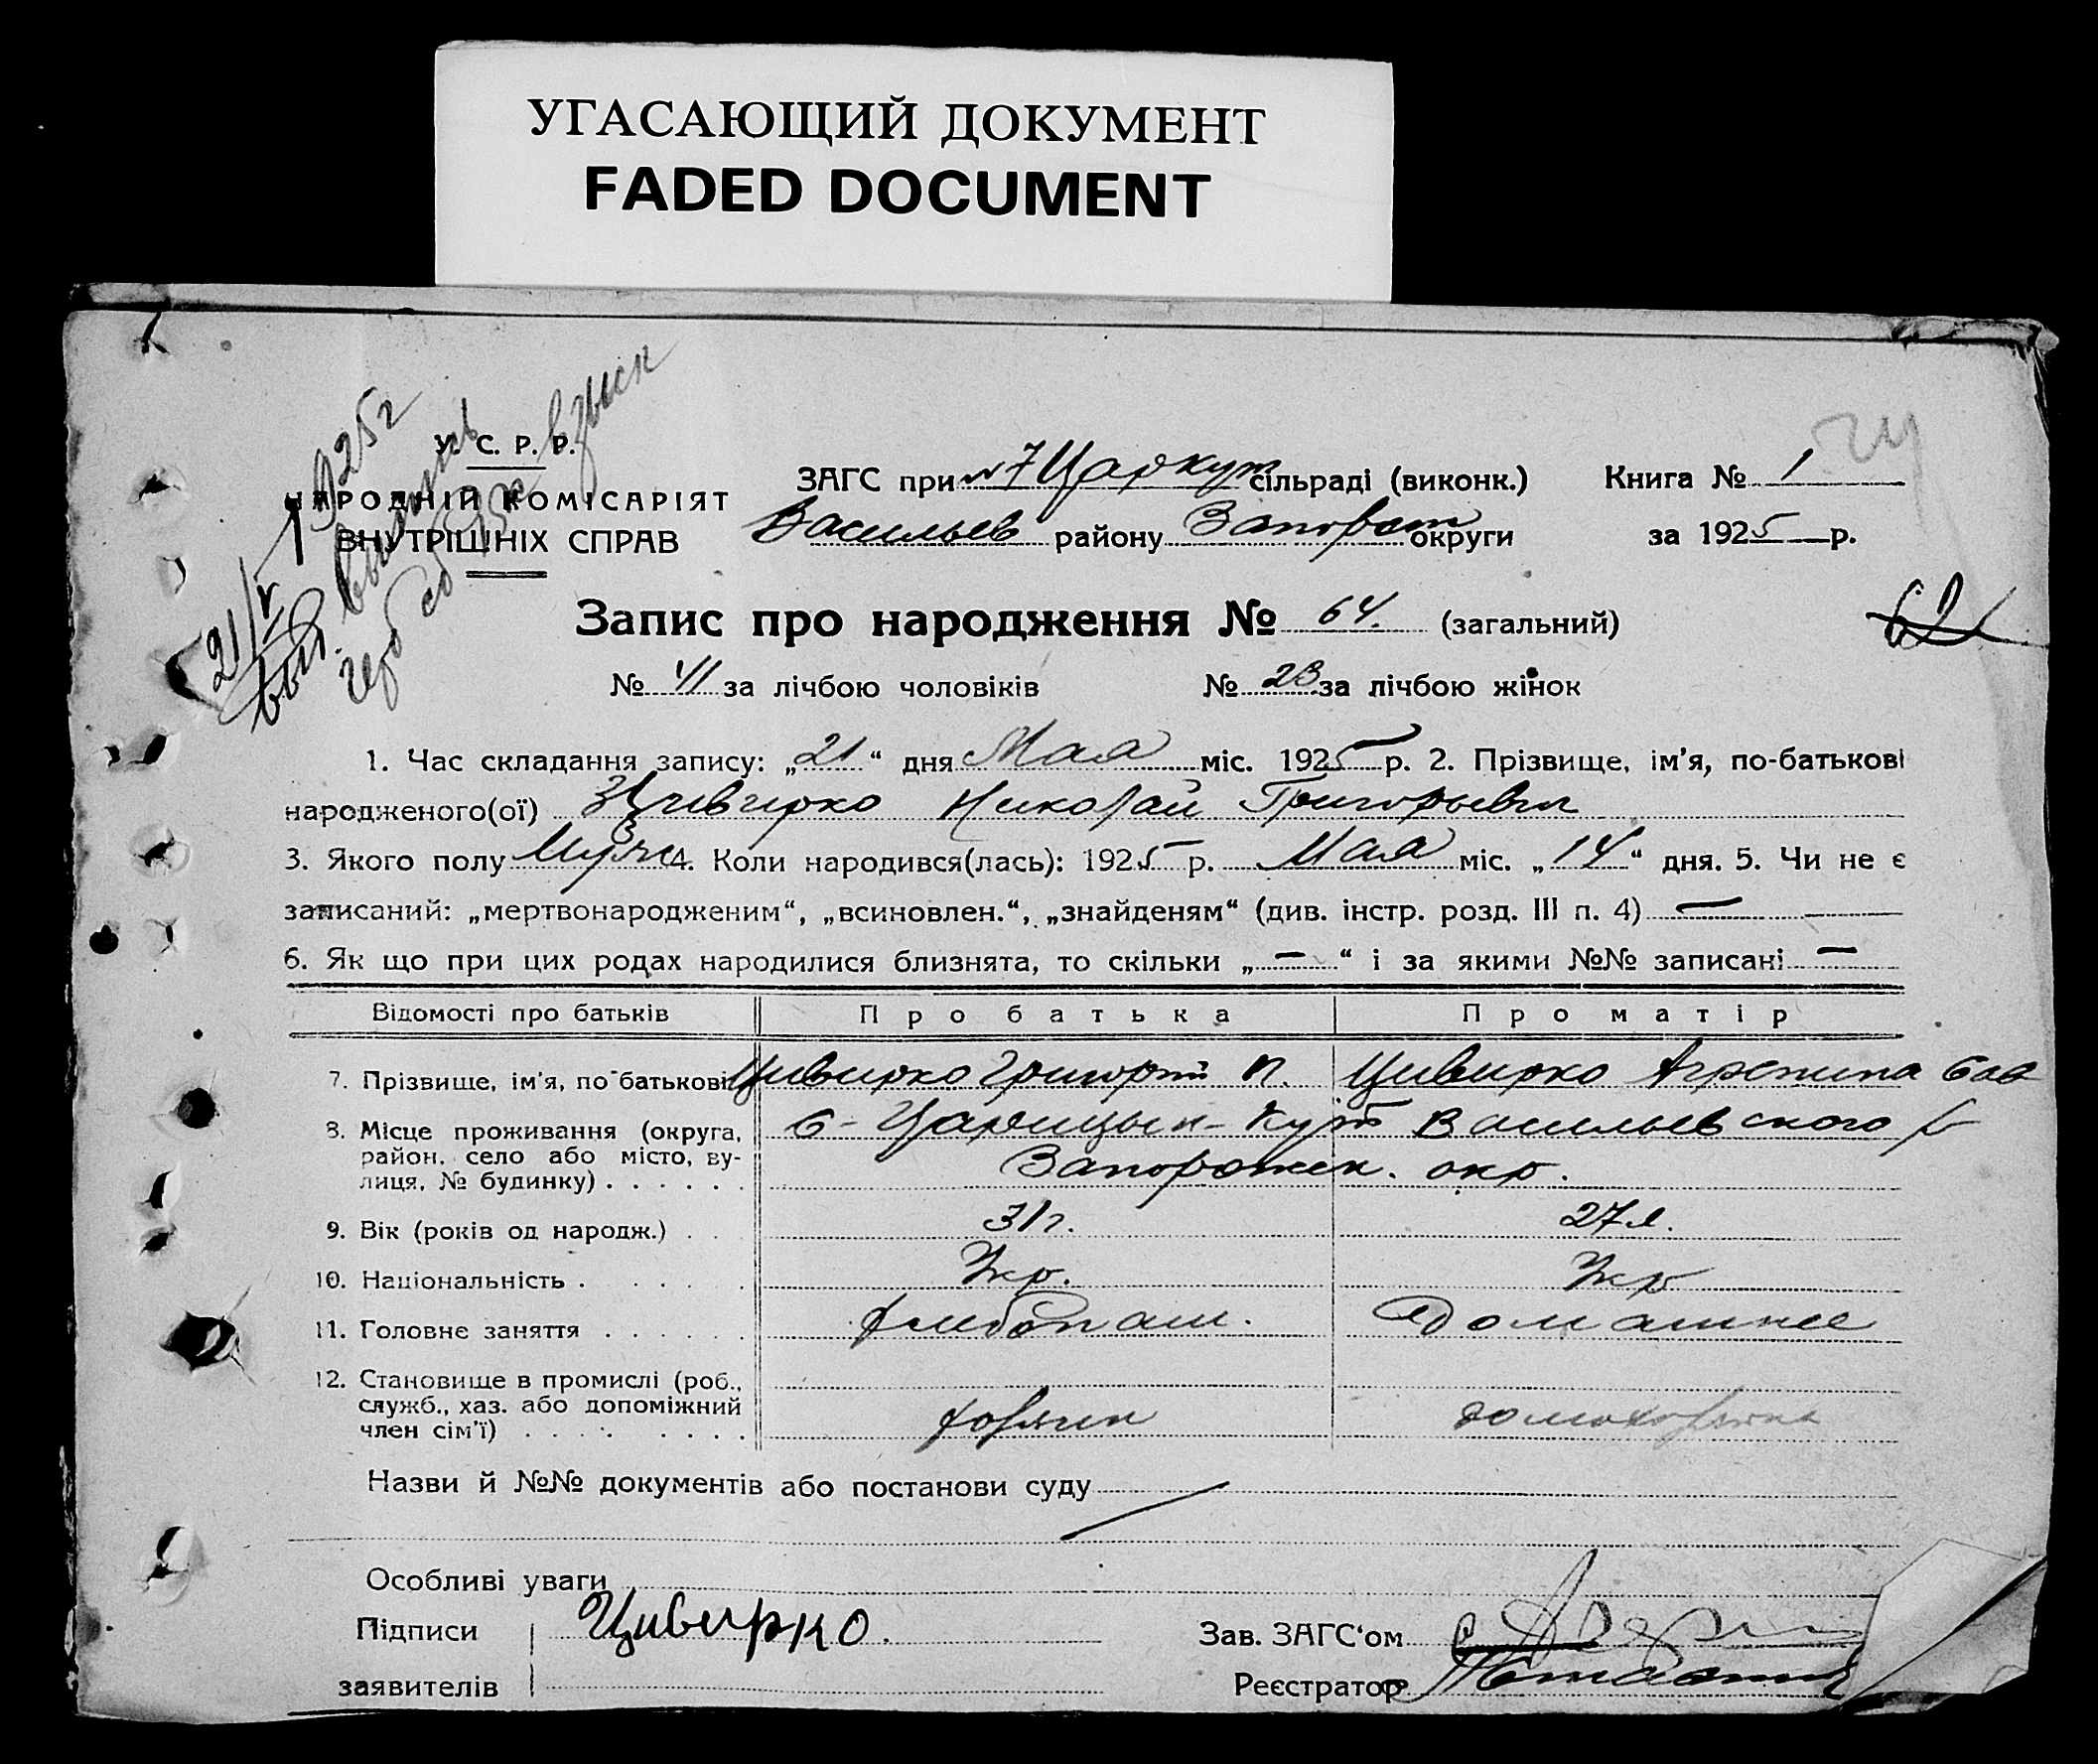 УГАСАЮЩИЙ ДОКУМЕНТ
FADED DOCUMENT
У. С. Р. Р.
НАРОДНІЙ КОМІСАРІЯТ
ВНУТРІШНІХ СПРАВ
21/V 1925 г
ЗАГС при №7 Царкут сільраді (виконк.) Книга № 1
Васильев району Запорож округи за 1925 р.
Запис про народження № 64. (загальний)
62
№ 41 за лічбою чоловіків № 23 за лічбою жінок
1. Час складання запису: „21“ дня Мая міс. 1925 р. 2. Прізвище, ім'я, по-батькові
народженого(ої) Цивирко Николай Григорьевич
3. Якого полу Мужс 4. Коли народився(лась): 1925 р. Мая міс. „14“ дня. 5. Чи не є
записаний: „мертвонародженим“, „всиновлен.“, „знайденям“ (див. інстр. розд. III п. 4) —
6. Як що при цих родах народилися близнята, то скільки „—“ і за якими №№ записані —
Відомості про батьків Про батька Про матір
7. Прізвище, ім'я, по-батькові Цивирко Григорий П. Цивирко Агрепина
8. Місце проживання (округа, район, село або місто, вулиця, № будинку) . . . . . . с- Царицын-Кут Васильевского р
Запорожск. окр.
9. Вік (років од народж.) . . . 31 г. 27 л.
10. Національність . . . . . Укр. Укр
11. Головне заняття . . . . . . хлебопаш. Домашнее
12. Становище в промислі (роб., служб., хаз. або допоміжний член сім'ї) . . . . . . . . хозяин домохозяйка
Назви й №№ документів або постанови суду
Особливі уваги
Підписи Цивирко. Зав. ЗАГС'ом
заявителів Реєстратор